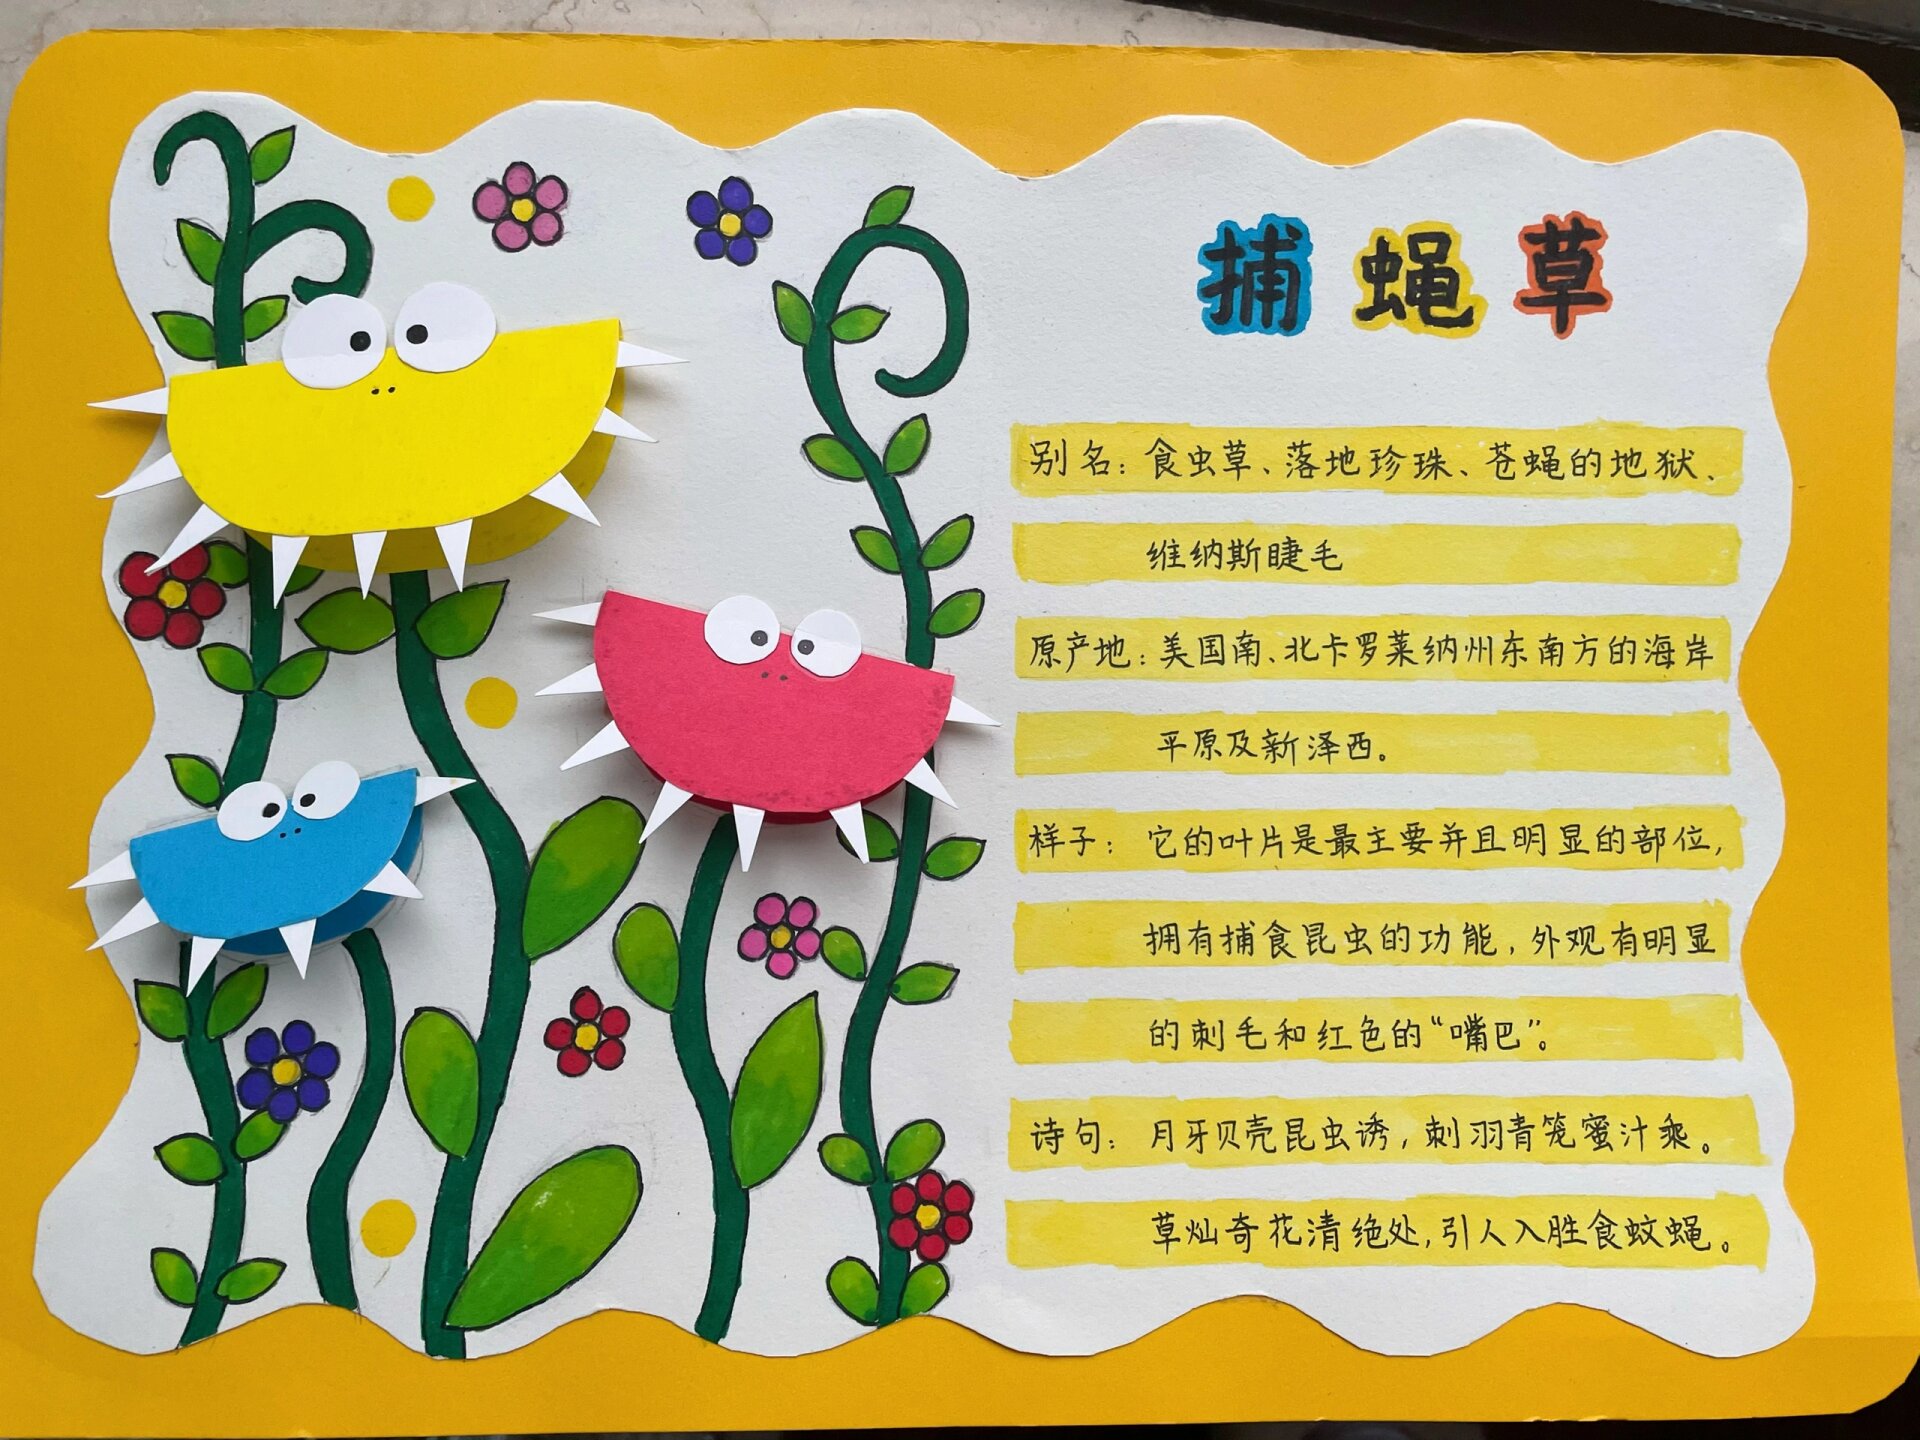 捕蝇草
别名：食虫草、落地珍珠、苍蝇的地狱、
维纳斯睫毛
原产地：美国南、北卡罗莱纳州东南方的海岸
平原及新泽西。
样子：它的叶片是最主要并且明显的部位，
拥有捕食昆虫的功能，外观有明显
的刺毛和红色的“嘴巴”。
诗句：月牙贝壳昆虫诱，刺羽青笼蜜汁乘。
草灿奇花清绝处，引人入胜食蚊蝇。